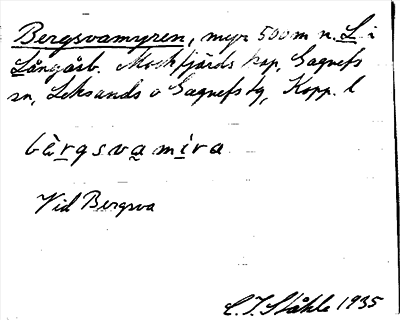 Bergsvamyren, myr 500 m n. L i
Långåsb. Mockfjärds kap, Gagnefs
sn, Leksands o Gagnefs tg, Kopp. l
bèrgsvamíra
Vid Bergsva
C. I. Ståhle 1935